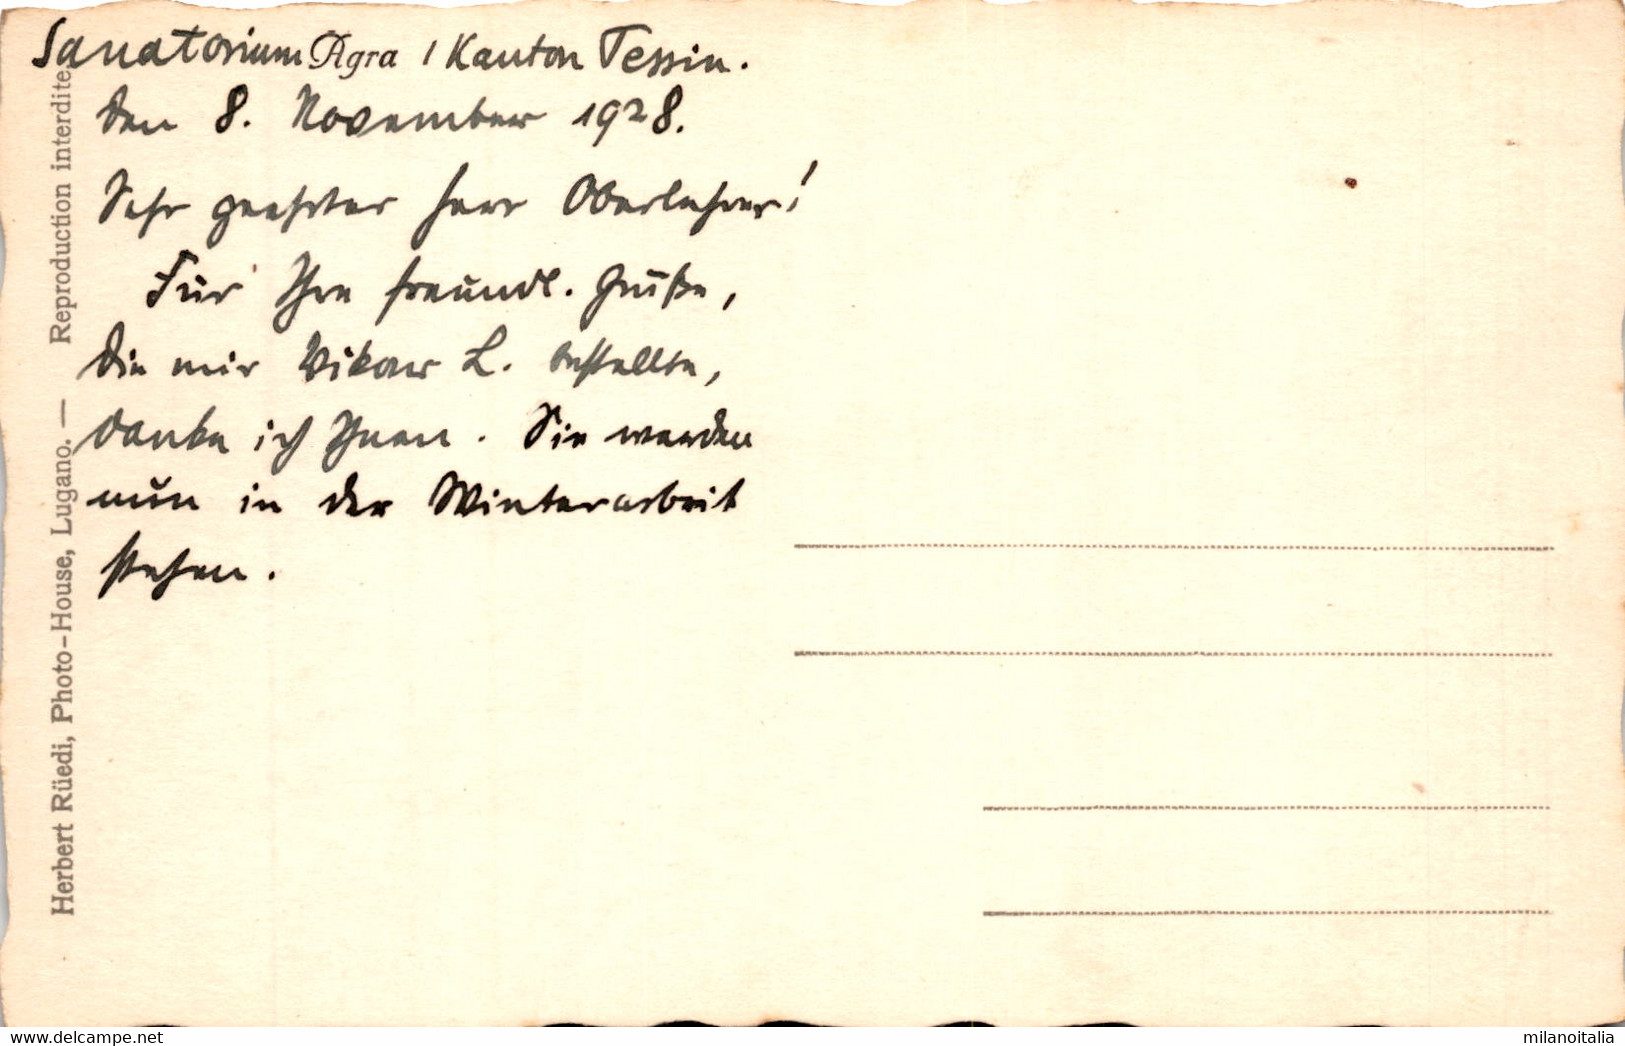 Sanatorium Agra / Kanton Tessin.
den 8. November 1928.
Sehr geehrter Herr Oberlehrer!
Für Ihre freundl. Grüße,
die mir Vikar L. bestellte,
danke ich Ihnen. Sie werden
nun in der Winterarbeit
stehen.
Herbert Rüedi, Photo-House, Lugano. — Reproduction interdite
delcampe.net
milanoitalia